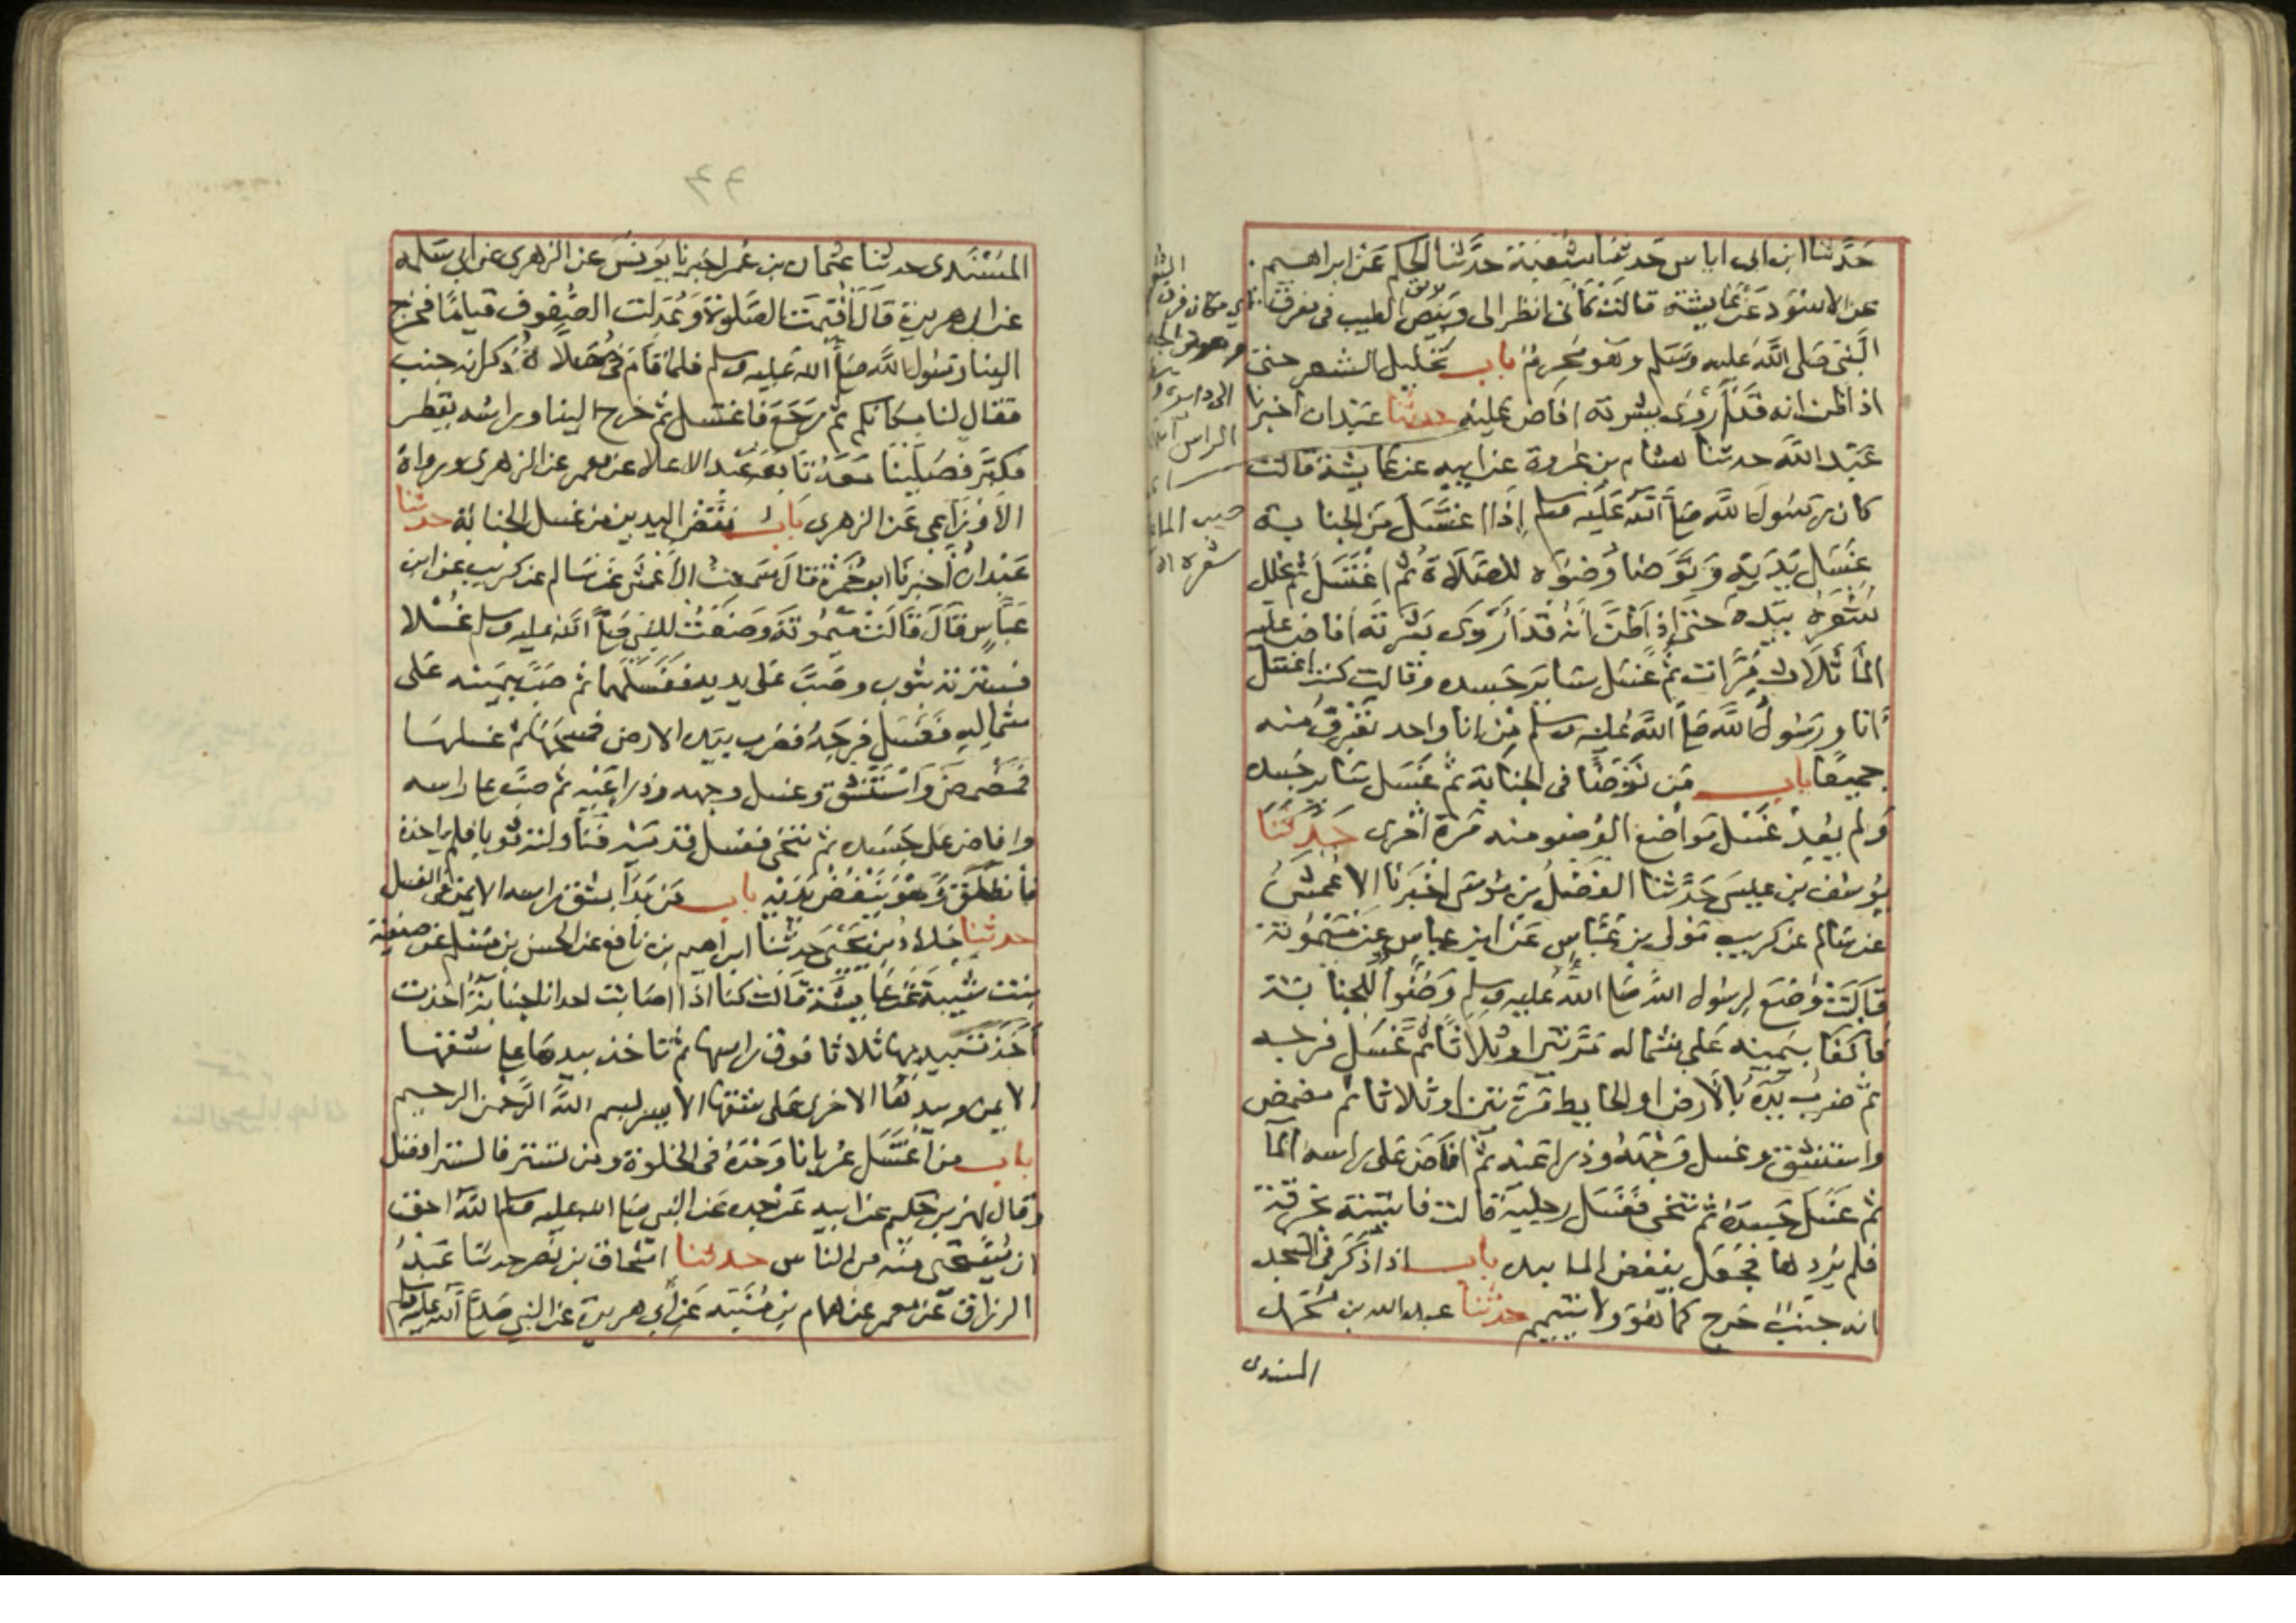 حدثنا ابن ابى اياس حدثنا شعبة حدثنا الحكم عن ابراهيم
عن الاسود عن عايشة قالت كأنى انظر الى وبيص الطيب فى مفرق
النبى صلى الله عليه وسلم وهو محرم باب تخليل الشعر حتى
اذا ظن انه قد أروى بشرته افاض عليه حدثنا عبدان اخبرنا
عبد الله حدثنا هشام بن عروة عن ابيه عن عايشة قالت
كان رسول الله صلى الله عليه وسلم إذا اغتسل من الجنابة
غسل يديه وتوضا وضوه للصلاة ثم اغتسل ثم تخلل
شعره بيده حتى إذا ظن أنه قد أروى بشرته أفاض عليه
الما ثلاث مرات ثم غسل ساير جسده وقالت كنت اغتسل
انا ورسول الله صلى الله عليه وسلم من انا واحد نغرف منه
جميعا باب من توضا فى الجنابة ثم غسل ساير جسده
ولم يعد غسل مواضع الوضو منه مرة اخرى حدثنا
يوسف بن عيسى حدثنا الفضل بن موسى اخبرنا الاعمش
عن سالم عن كريب مولى بن عباس عن ابن عباس عن ميمونة
قالت وضع لرسول الله صلى الله عليه وسلم وضوا للجنابة
فاكفا بيمينه على شماله مرتين او ثلاثا ثم غسل فرجه
ثم ضرب يده بالارض او الحايط مرتين او ثلاثا ثم مضمض
واستنشق وغسل وجهه وذراعيه ثم افاض على راسه الما
ثم غسل جسده ثم تنحى فغسل رجليه قالت فاتيته بخرقة
فلم يردها فجعل ينفض الما بيده باب اذا ذكر فى المسجد
انه جنب خرج كما هو ولا يتيمم حدثنا عبد الله بن محمد
المسندى
المسندى حدثنا عثمان بن عمر اخبرنا يونس عن الزهرى عن ابي سلمه
عن ابى هريرة قال اقيمت الصلوة وعدلت الصفوف قياما فخرج
الينا رسول الله صلى الله عليه وسلم فلما قام فى مصلاه ذكر انه جنب
فقال لنا مكانكم ثم رجع فاغتسل ثم خرج الينا وراسه يقطر
فكبر فصلينا معه تابعه عبد الاعلا عن معمر عن الزهرى ورواه
الاوزاعي عن الزهرى باب نفض اليدين من غسل الجنابة حدثنا
عبدان أخبرنا ابو حمزة قال سمعت الاعمش عن سالم عن كريب عن ابن
عباس قال قالت ميمونة وضعت للنبي صلى الله عليه وسلم غسلا
فسترته بثوب وصب على يديه فغسلهما ثم صب بيمينه على
شماله فغسل فرجه فضرب بيده الارض فمسحها ثم غسلها
فمضمض واستنشق وغسل وجهه وذراعيه ثم صب على راسه
وافاض على جسده ثم تنحى فغسل قدميه فناولته ثوبا فلم ياخذه
فانطلق وهو ينفض يديه باب من بدأ بشق راسه الايمن فى الغسل
حدثنا خلاد بن يحيى حدثنا ابراهيم بن نافع عن الحسن بن مسلم عن صفية
بنت شيبة عن عايشة قالت كنا اذا اصابت احدانا جنابة اخذت
اخذت بيديها ثلاثا فوق راسها ثم تاخذ بيدها على شقها
الايمن وبيدها الاخرى على شقها الايسر بسم الله الرحمن الرحيم
باب من اغتسل عريانا وحده فى الخلوة ومن تستر فالستر افضل
وقال بهز بن حكيم عن ابيه عن جده عن النبى صلى الله عليه وسلم الله احق
ان يستحيى منه من الناس حدثنا اسحاق بن نصر حدثنا عبد
الرزاق عن معمر عن همام بن منبه عن ابي هريرة عن النبي صلى الله عليه وسلم